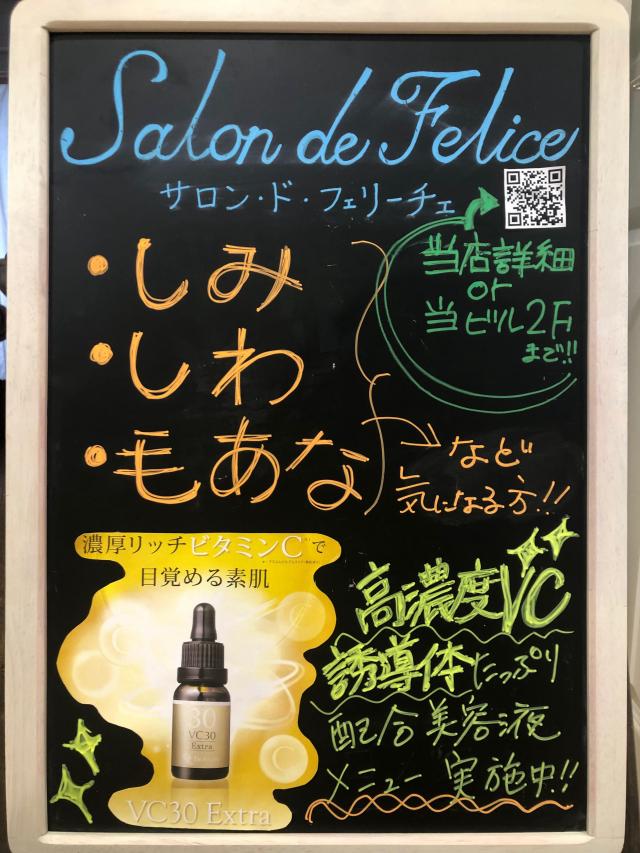 Salon de Felice
サロン・ド・フェリーチェ
・しみ
・しわ
・毛あな
当店詳細
or
当ビル2F
まで!!
など
気になる方!!
濃厚リッチビタミンCで
目覚める素肌
30
VC30
Extra
VC30 Extra
高濃度VC
誘導体たっぷり
配合美容液
メニュー実施中!!